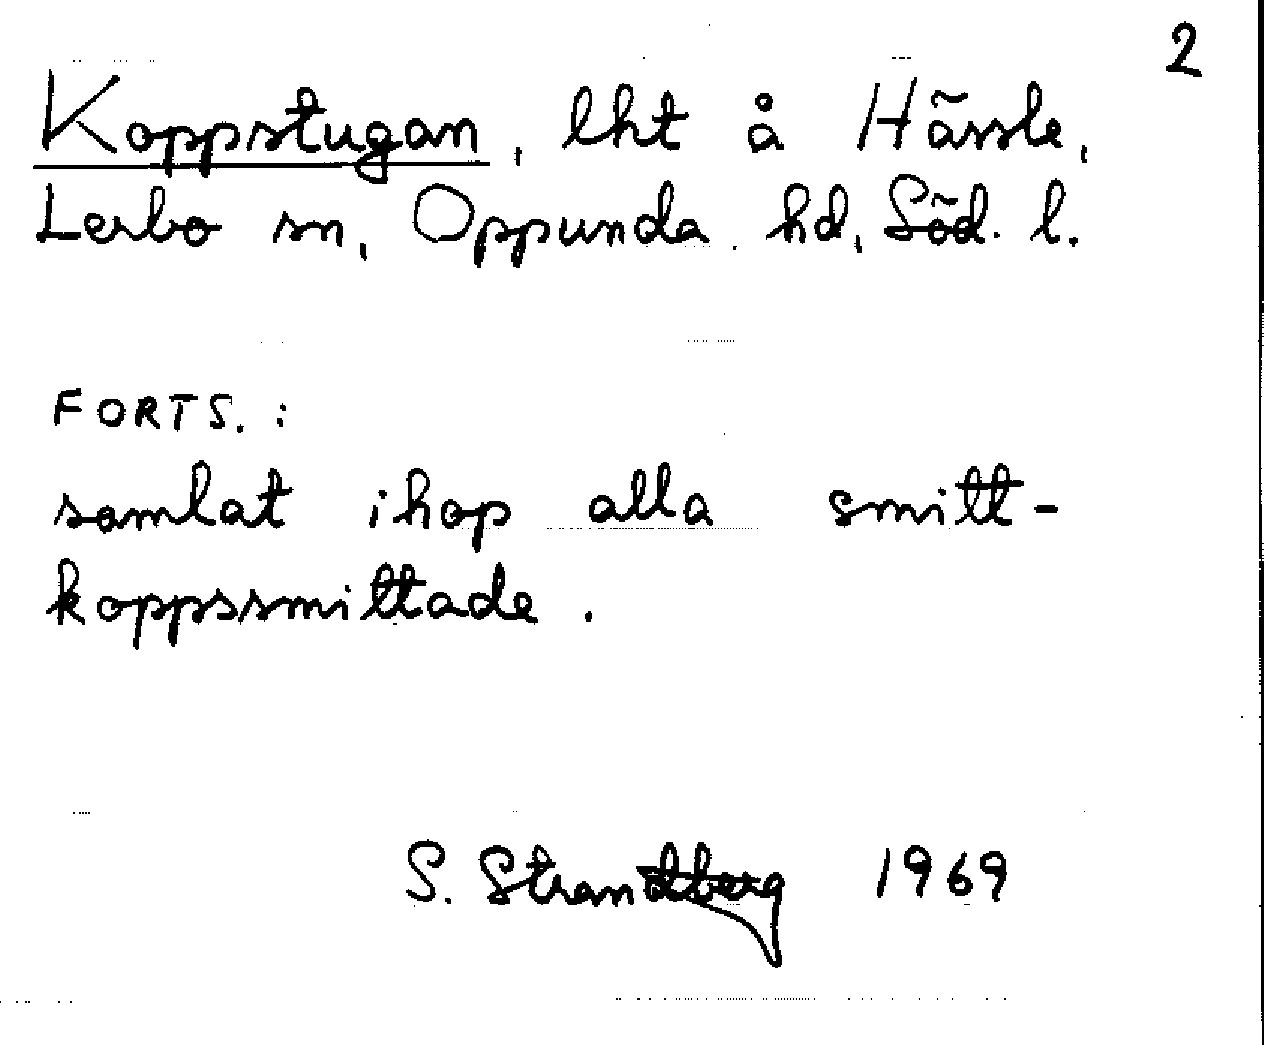 2
Koppstugan, lht å Hässle,
Lerbo sn, Oppunda hd, Söd. l.
FORTS. :
samlat ihop alla smitt-
koppssmittade.
S. Strandberg 1969